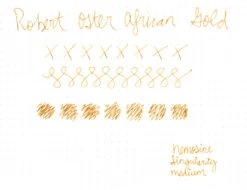 Robert Oster African Gold
x x x x x x x x
nemosine
singularity
medium